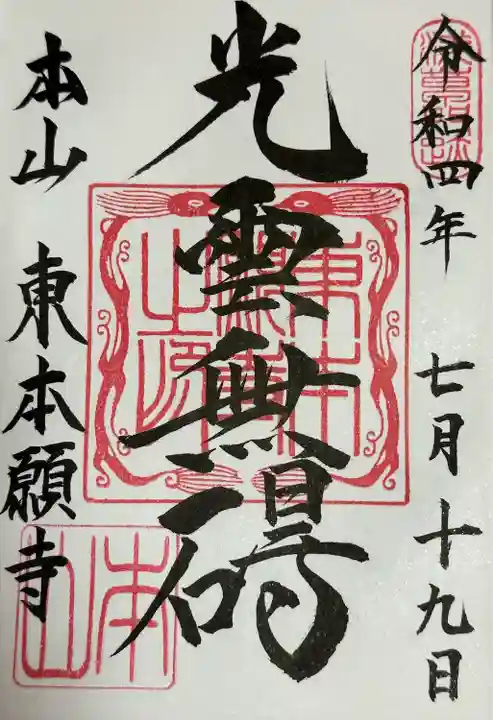 令和四年 七月十九日
光雲無碍
本山 東本願寺